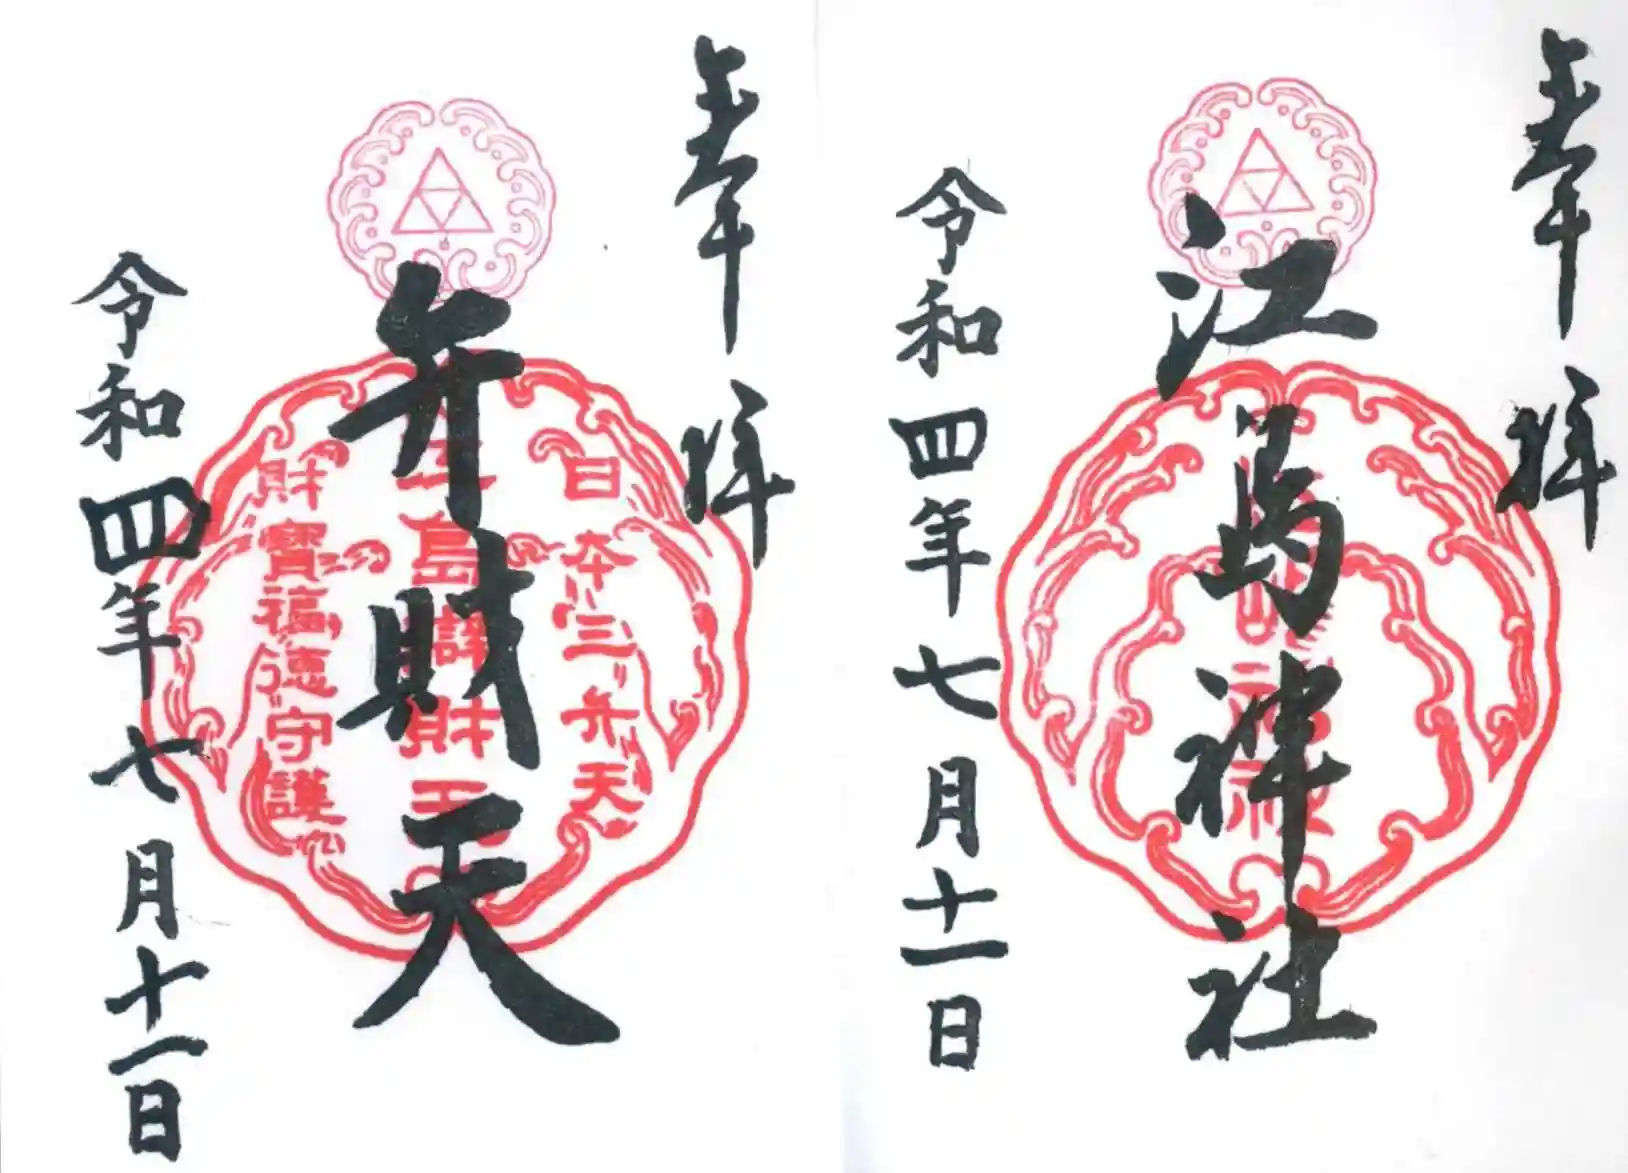 奉拝
江島神社
令和四年七月十一日
奉拝
日本三弁天
弁財天
財寶福徳守護
令和四年七月十一日